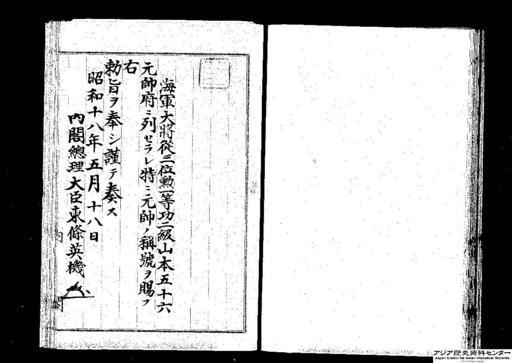 海軍大將從三位勲一等功二級山本五十六
元帥府ニ列セラレ特ニ元帥ノ稱號ヲ賜フ
右
勅旨ヲ奉シ謹テ奏ス
昭和十八年五月十八日
內閣總理大臣東條英機
内
アジア歴史資料センター
Japan Center for Asian Historical Records